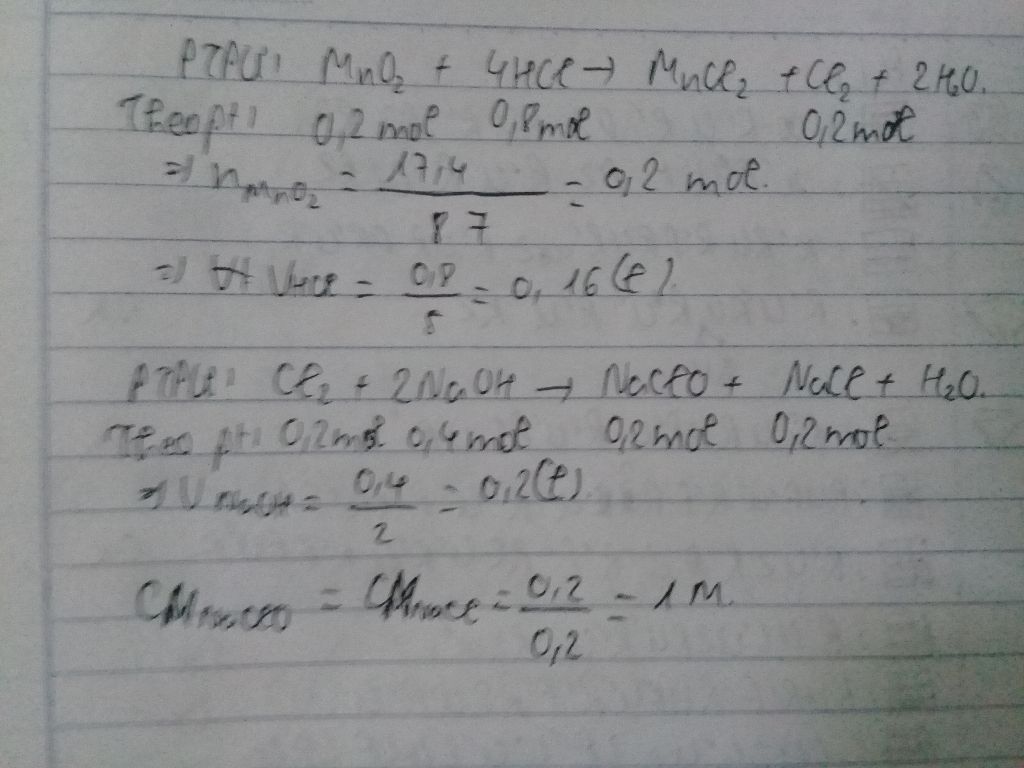 PTPƯ: MnO₂ + 4HCl → MnCl₂ + Cl₂ + 2H₂O.
Theo pt: 0,2 mol 0,8 mol 0,2 mol
=> nMnO₂ = 17,4 / 87 = 0,2 mol.
=> VHCl = 0,8 / 5 = 0,16 (l).
PTPƯ: Cl₂ + 2NaOH → NaClO + NaCl + H₂O.
Theo pt: 0,2 mol 0,4 mol 0,2 mol 0,2 mol.
=> VNaOH = 0,4 / 2 = 0,2 (l).
CMNaClO = CMNaCl = 0,2 / 0,2 = 1M.